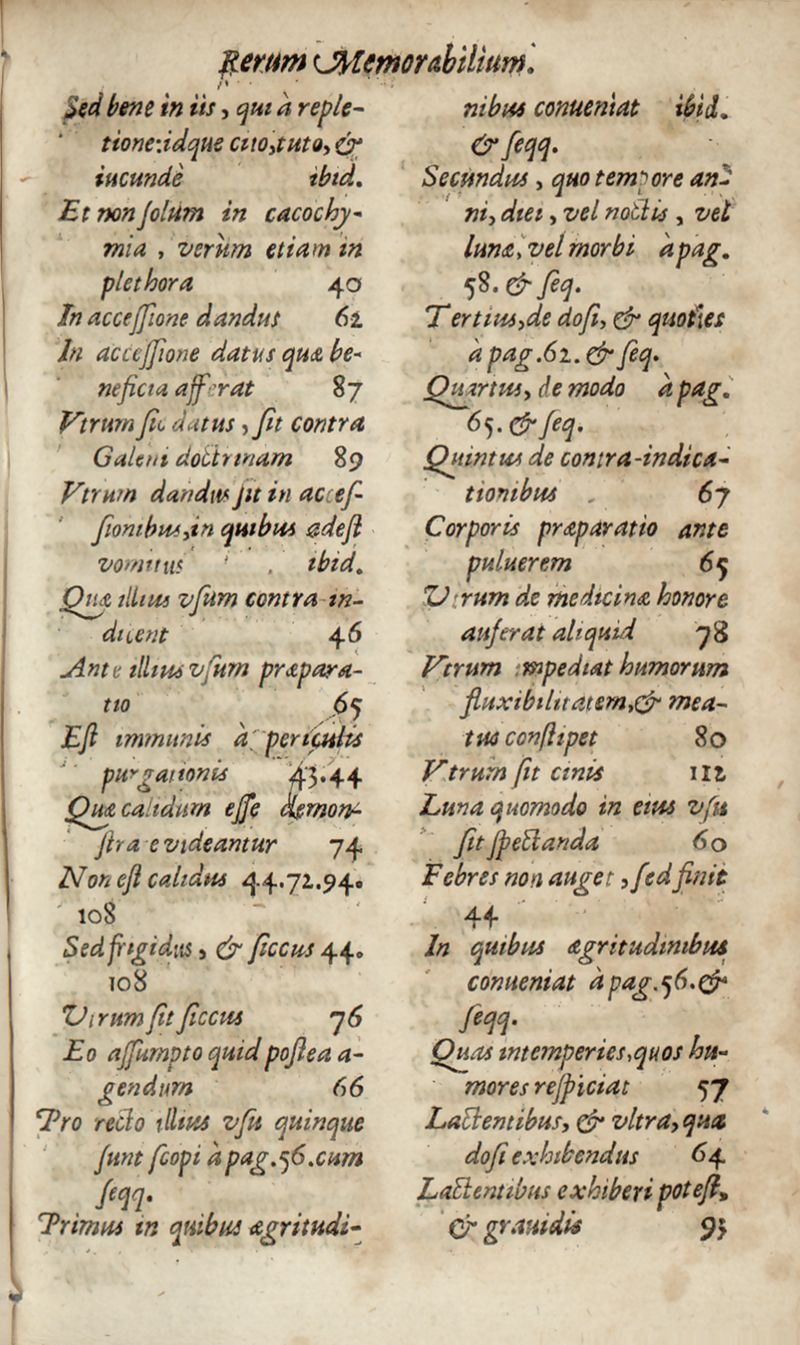 Rerum Memorabilium.
Sed bene in iis, qui à reple-
tione:idque cito,tuto, &
iucundè ibid.
Et non solùm in cacochy-
mia , verùm etiam in
plethora 40
In accessione dandus 62
In accessione datus quæ be-
neficia afferat 87
Vtrum sic datus, sit contra
Galeni doctrinam 89
Vtrum dandus sit in acces-
sionibus,in quibus adest
vomitus ibid.
Quæ illius vsum contra in-
dicent 46
Ante illius vsum præpara-
tio 65
Est immunis à periculis
purgationis 43.44
Quæ calidum esse demon-
strare videantur 74
Non est calidus 44.72.94.
108
Sed frigidus, & siccus 44.
108
Vtrum sit siccus 76
Eo assumpto quid postea a-
gendum 66
Pro recto illius vsu quinque
sunt scopi à pag.56.cum
seqq.
Primus in quibus ægritudi-
nibus conueniat ibid.
& seqq.
Secundus, quo tempore an-
ni, diei, vel noctis, vel
lunæ, vel morbi à pag.
58. & seq.
Tertius,de dosi, & quoties
à pag.62. & seq.
Quartus, de modo à pag.
65. & seq.
Quintus de contra-indica-
tionibus 67
Corporis præparatio ante
puluerem 65
Vtrum de medicinæ honore
auferat aliquid 78
Vtrum impediat humorum
fluxibilitatem,& mea-
tus constipet 80
Vtrum sit cinis 112
Luna quomodo in eius vsu
sit spectanda 60
Febres non auget, sed finit
44
In quibus ægritudinibus
conueniat à pag.56.&
seqq.
Quas intemperies,quos hu-
mores respiciat 57
Lactentibus, & vltra, qua
dosi exhibendus 64
Lactentibus exhiberi potest,
& grauidis 93